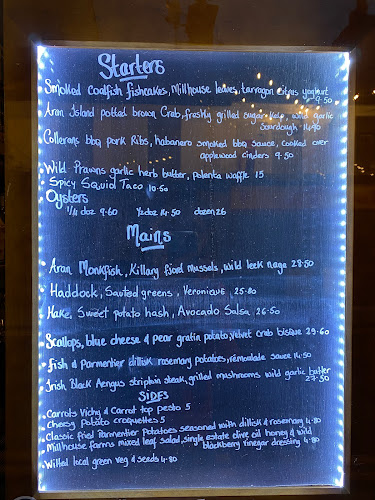 Starters
Smoked Coalfish fishcakes, Millhouse leaves, tarragon citrus yoghurt
9.50
Aran Island potted brown Crab, freshly grilled sugar kelp, wild garlic
sourdough 14.90
Collerans bbq pork Ribs, habanero smoked bbq sauce, cooked over
applewood cinders 9.50
Wild Prawns garlic herb butter, polenta waffle 15
Spicy Squid Taco 10.50
Oysters
1/4 doz 9.60 1/2 doz 14.50 dozen 26
Mains
Aran Monkfish, Killary fjord mussels, wild leek nage 28.50
Haddock, Sauted greens, Veronique 25.80
Hake, Sweet potato hash, Avocado Salsa 26.50
Scallops, blue cheese & pear gratin potato, velvet crab bisque 29.60
fish & Parmentier dillisk rosemary potatoes, remoulade sauce 14.50
Irish Black Aengus striploin steak, grilled mushrooms wild garlic butter
27.50
SIDES
Carrots Vichy & Carrot top pesto 5
Cheesy Potato croquettes 5
Classic fried Parmentier potatoes seasoned with dillisk & rosemary 4.80
Millhouse farms mixed leaf salad, single estate olive oil honey & wild
blackberry vinegar dressing 4.80
Wilted local green veg & seeds 4.80